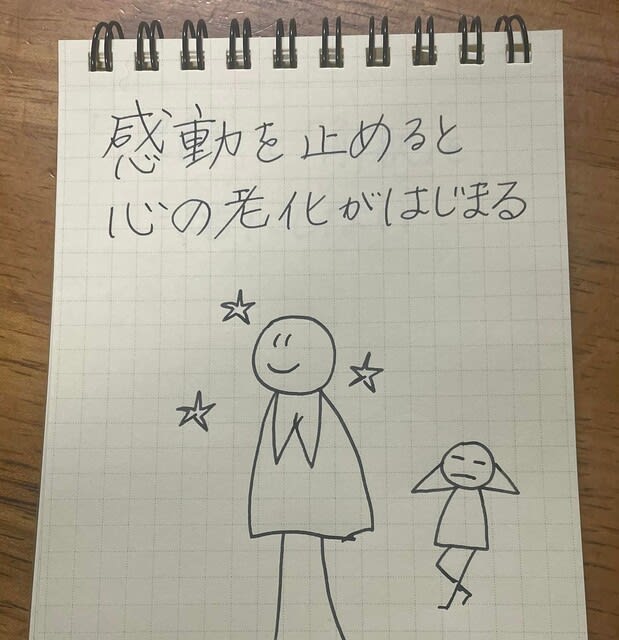 感動を止めると
心の老化がはじまる